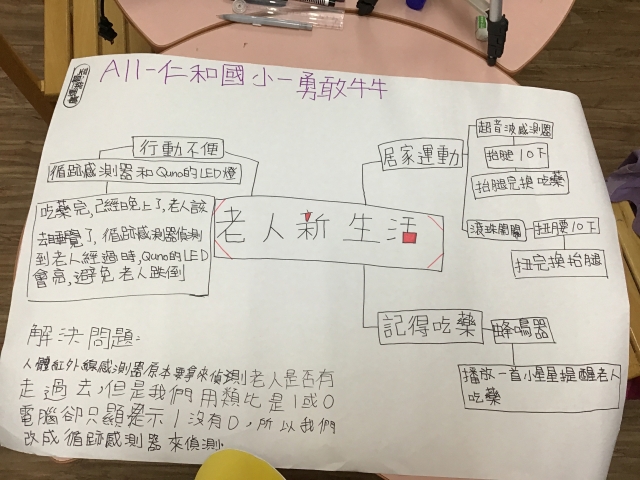 A11-仁和國小-勇敢牛牛
行動不便
循跡感測器和Quno的LED燈
吃藥完,已經晚上了,老人該
去睡覺了,循跡感測器偵測
到老人經過時,Quno的LED
會亮,避免老人跌倒
老人新生活
居家運動
超音波感測器
抬腿10下
抬腿完換吃藥
滾珠開關
扭腰10下
扭完換抬腿
記得吃藥
蜂鳴器
播放一首小星星提醒老人
吃藥
解決問題:
人體紅外線感測器原本要拿來偵測老人是否有
走過去,但是我們用類比是1或0
電腦卻只顯示1沒有0,所以我們
改成循跡感測器來偵測.